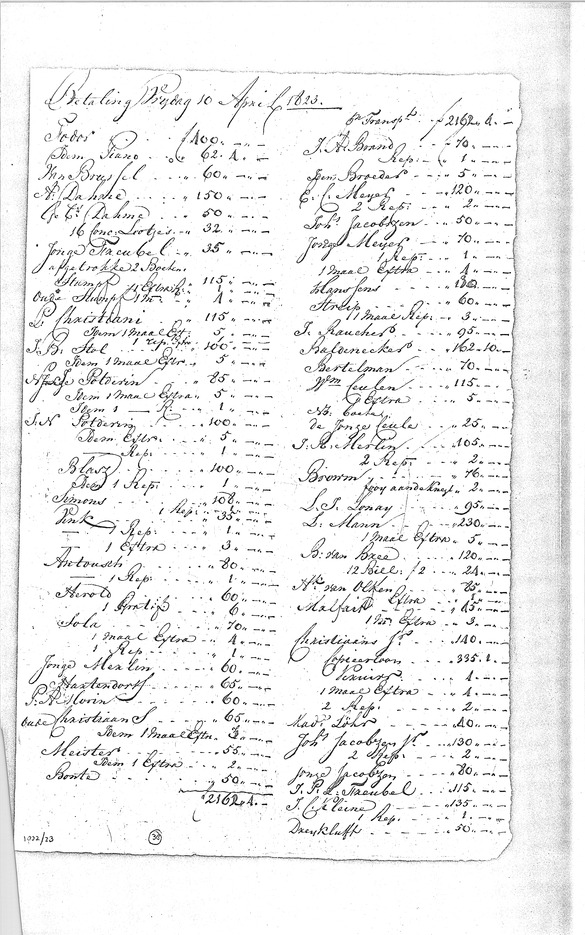 Betaling Vrydag 10 April 1823.
Fodor f 400. —
Idem Piano 62. 4. —
Van Brussel 60 —
A: Dahme 150 —
Ge Cs Dahme 50 —
16 Conc: Lootjes 32 —
Jonge Taeubel 35 —
afgetrokke 2 Boeken
Stumpf 115 —
1 Extra R: 1 —
Oude Stumpf 1 m: 4 —
Christiani 115 —
Idem 1 maal Ext: 5 —
J. B: Stol 100 —
Idem 1 maal Extra 5 —
Potdevin 85 —
Idem 1 maal Extra 5 —
Idem 1 — R: 1 —
J: N Potdevin 100 —
Idem Extra 5 —
Rep: 1 —
Blasz 100 —
1 Rep: 1 —
Simons 108 —
1 Rep:
Vink 35 —
— 1 Rep: 1 —
1 Extra 3 —
Antousch 80 —
— 1 Rep: 1 —
Herold 60 —
1 Gratif 6 —
Sola 70 —
1 maal Extra 4 —
1 Rep: 1 —
Jonge Merlin 60 —
Hartendorf 65 —
Morin 60 —
Oude Christiaans 65 —
Idem 1 maal Extra 3 —
Meister 55 —
Idem 1 Extra 2 —
Bonte 50 —
2162. 4. —
1922/23
38
Pr Transpt f 2162. 4. —
J. A: Brand 70 —
Rep: 1 —
Idem Broeder 5 —
E. C. Meyer 120 —
2 Rep: 2 —
Johs Jacobszen 50 —
Jonge Meyer 70 —
1 Rep: 1 —
1 maal Extra 4 —
Hanssens
Streip 60 —
1 maal Rep: 3 —
J. Rauscher 95 —
Baldenecker 162. 10. —
Bertelman 70 —
Wm Seulen 115 —
Extra 5 —
de Jonge Seule 25 —
Merlin 105 —
2 Rep: 2 —
Broorm 76 —
fooy aan de Knegt 2 —
L. J. Lonay 95 —
L: Mann 230 —
1 maal Extra 5 —
B: van Bree 120 —
12 Bill: f 2 24 —
Hk van Olken 85 —
Extra
Malfart 45 —
1 m: Extra 3 —
Christiaans Jr 140 —
Copieerloon 335. 1. —
4 —
1 maal Extra 4 —
2 Rep: 2 —
Madr Löhr 40 —
Johs Jacobszen Jr 130 —
2 Rep: 2 —
Jonge Jacobszen 80 —
J. P. L: Taeubel 115 —
J. C. Kleine 135 —
1 Rep: 1 —
Dreykluft 50 —